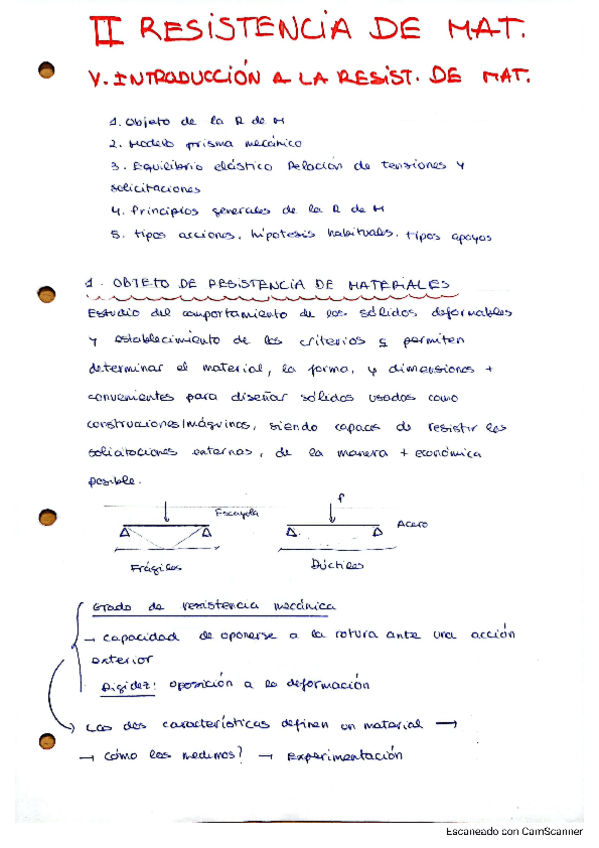 II RESISTENCIA DE MAT.
V. INTRODUCCIÓN A LA RESIST. DE MAT.
1. Objeto de la R de M
2. Modelo prisma mecánico
3. Equilibrio elástico Relación de tensiones y
solicitaciones
4. Principios generales de la R de M
5. tipos acciones. hipótesis habituales. tipos apoyos
1. OBJETO DE RESISTENCIA DE MATERIALES
Estudio del comportamiento de los sólidos deformables
y establecimiento de los criterios q permiten
determinar el material, la forma, y dimensiones +
convenientes para diseñar sólidos usados como
construcciones/máquinas, siendo capaces de resistir las
solicitaciones externas, de la manera + económica
posible.
Escayola
P
Acero
Frágiles
Dúctiles
Grado de resistencia mecánica
→ capacidad de oponerse a la rotura ante una acción
exterior
Rigidez: oposición a la deformación
Las dos características definen un material →
→ cómo las medimos? → Experimentación
Escaneado con CamScanner